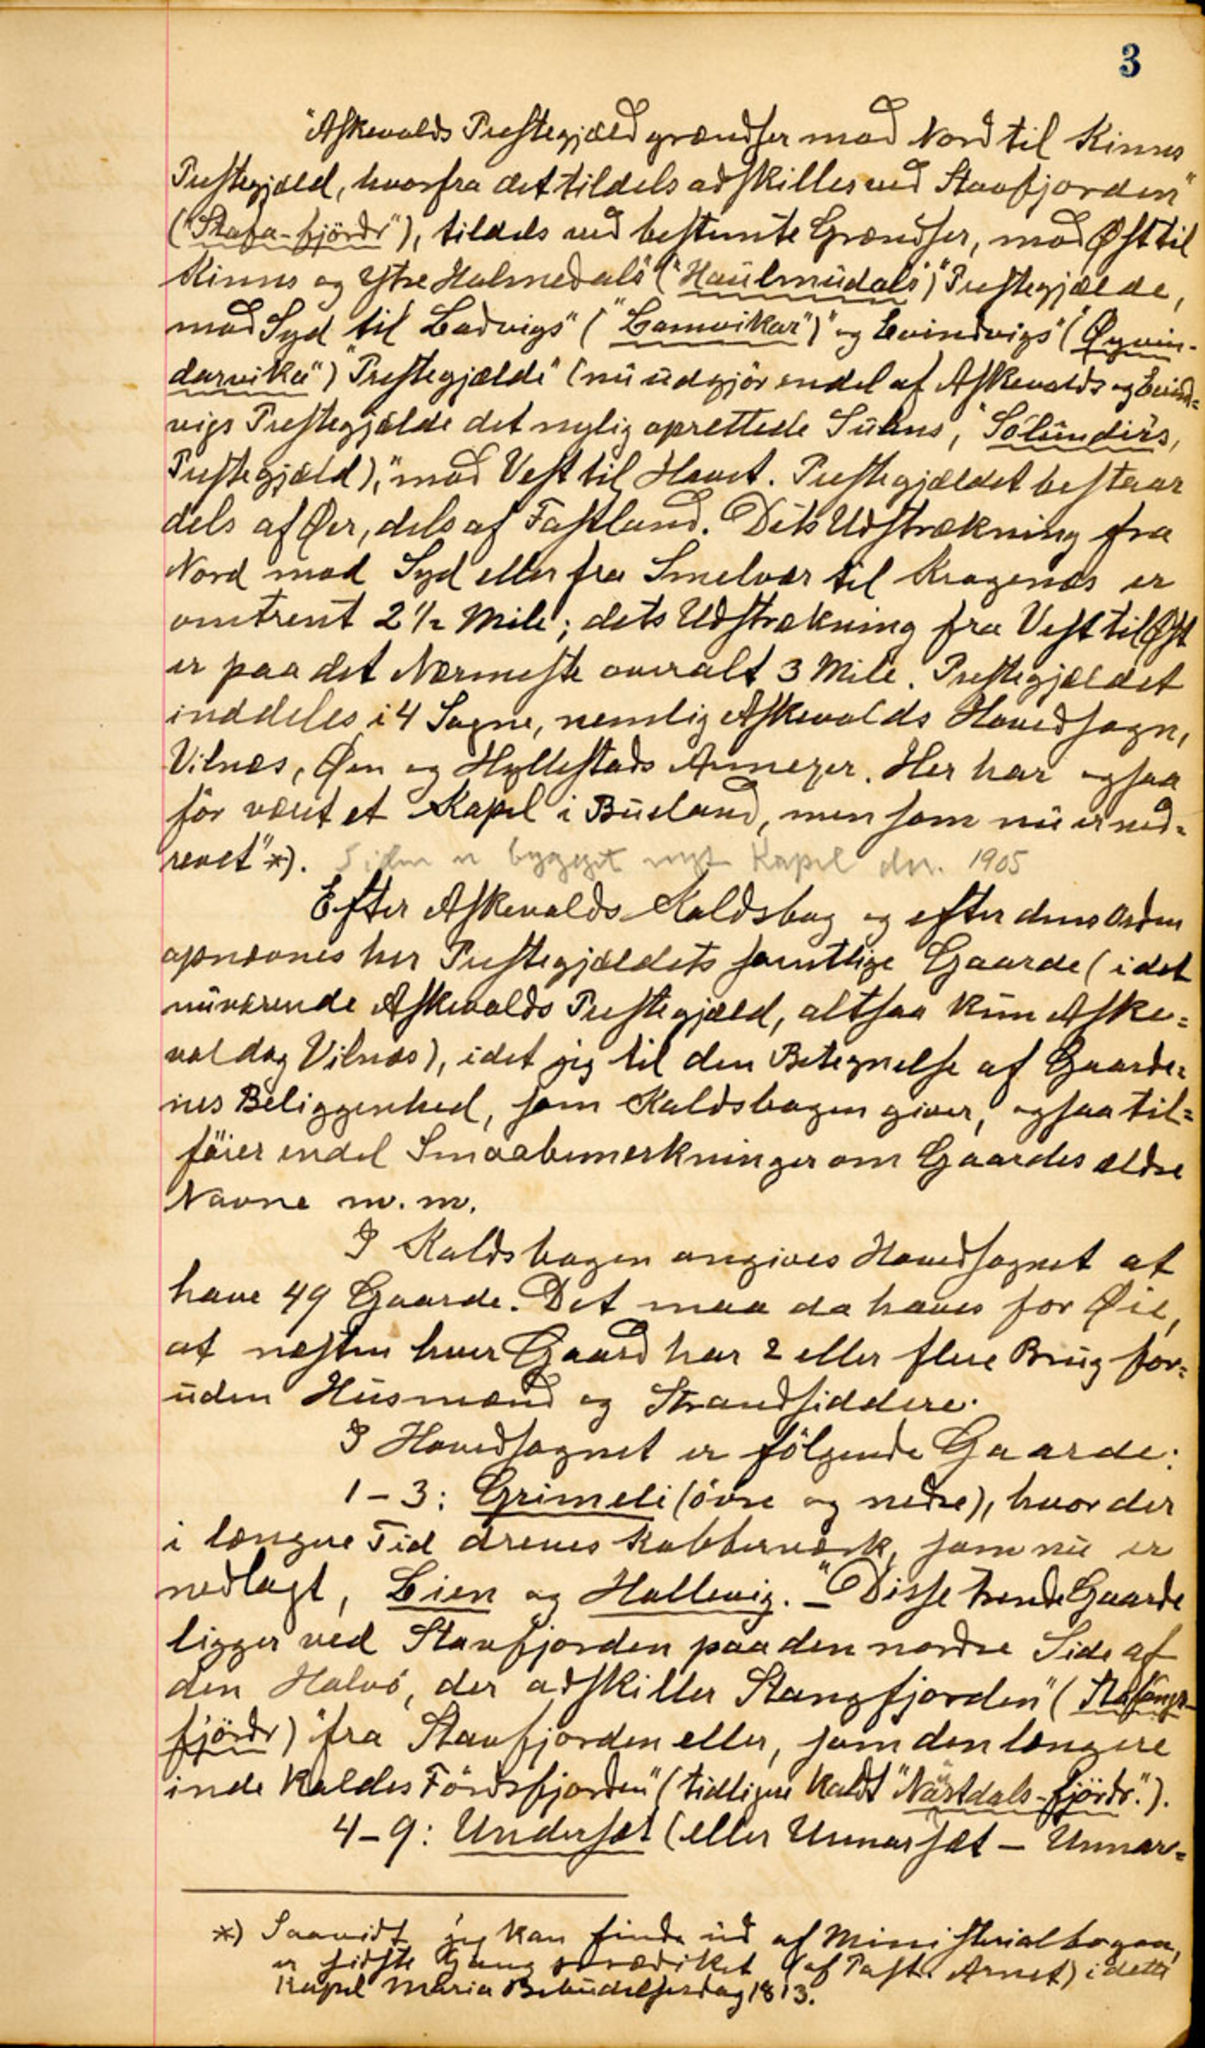 3
"Askevolds Prestegjæld grændser mod Nord til Kinns
Prestegjæld, hvorfra det tildels adskilles ved Stavfjorden"
("Stafa-fjördr"), tildels ved bestemte Grændser, mod Øst til
Kinns og Ytre Holmedals" ("Haulmudals") "Prestegjælde,
mod Syd til Ladvigs" ("Lamvikar") "og Evindvigs" (Øyvin-
darvika") "Prestegjælde" (nu udgjör endel af Askevolds og Evind=
vigs Prestegjælde det nylig oprettede Sulens, "Sólundirs,
Prestegjæld), "mod Vest til Havet. Prestegjældet bestaar
dels af Øer, dels af Fastland. Dets Udstrækning fra
Nord mod Syd eller fra Smelvær til Kragenæs er
omtrent 2 1/2 Mile; dets Udstrækning fra Vest til Øst
er paa det Nærmeste overalt 3 Mile. Prestegjældet
inddeles i 4 Sogne, nemlig Askevolds Hovedsogn,
Vilnæs, Øen og Hyllestads Annexer. Her har ogsaa
för været et Kapel i Bueland, men som nu er ned=
revet" *). Siden er bygget nyt Kapel der. 1905
Efter Askevolds Kaldsbog og efter dens Orden
opnævnes her Prestegjældets samtlige Gaarde (i det
nuværende Askevolds Prestegjæld, altsaa kun Aske=
vold og Vilnæs), idet jeg til den Betegnelse af Gaarde=
nes Beliggenhed, som Kaldsbogen giver, ogsaa til=
föier endel Smaabemerkninger om Gaardes ældre
Navne m. m.
I Kaldsbogen angives Hovedsognet at
have 49 Gaarde. Det maa da haves for Øie,
at næsten hver Gaard har 2 eller flere Brug for=
uden Husmænd og Strandsiddere.
I Hovedsognet er fölgende Gaarde:
1-3: Grimeli (övre og nedre), hvor der
i længere Tid dreves Kobberværk, som nu er
nedlagt, Lien og Hallevig. - "Disse trende Gaarde
ligger ved Stavfjorden paa den nordre Side af
den Halvö, der adskiller Stangfjorden" (Stafangr-
fjördr) "fra Stavfjorden eller, som den længere
inde kaldes Fördsfjorden" (tidligere kaldt "Nàrtdals-fjördr").
4-9: Undersæt (eller Unnarsæt - Unnar=
*) Saavidt jeg kan finde ud af Ministerialbogen,
er sidste Gang prædiket (af Past. Arnet) i dette
Kapel Maria Bebudelsesdag 1813.